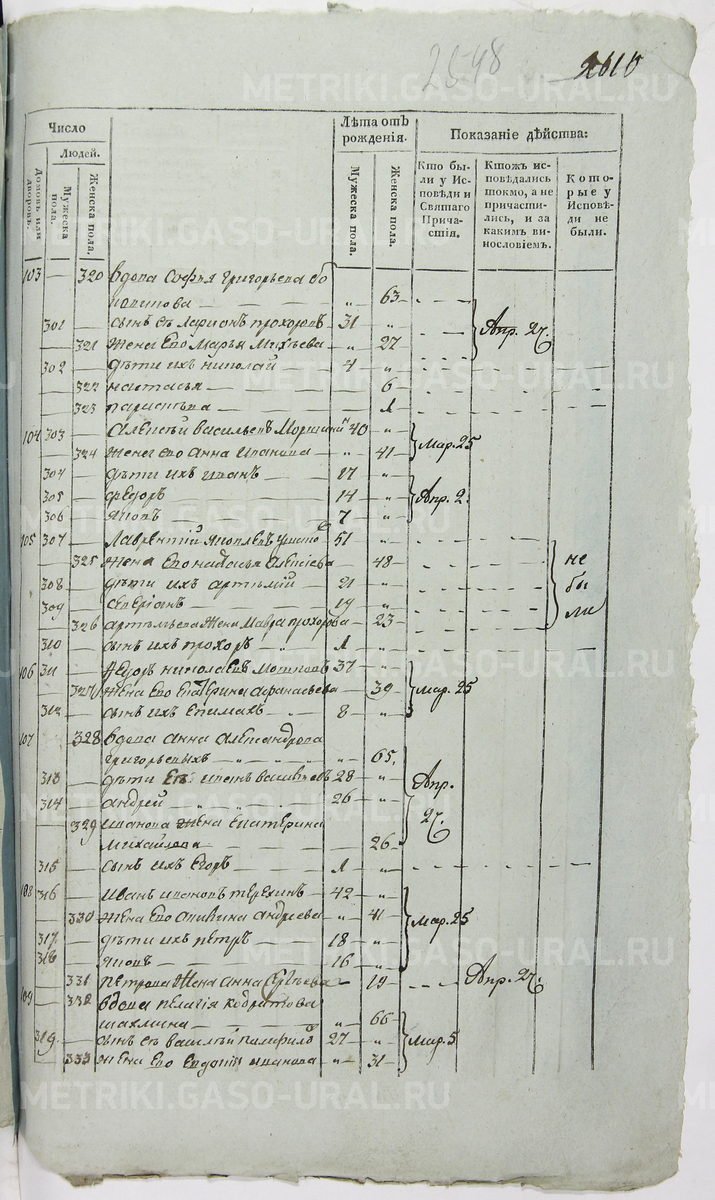 2548 2610
Число
Людей.
Домовъ или дворовъ.
Мужеска пола.
Женска пола.
Лѣта отъ рожденія.
Мужеска пола.
Женска пола.
Показаніе дѣйства:
Кто были у Исповѣди и Святаго Причастія.
Ктожъ исповѣдались токмо, а не причастились, и за какимъ винословіемъ.
Которые у Исповѣди не были.
103 — 320 вдова Софья Григорьева
— — „ 63
301 — сынъ ея Ларионъ Прохоровъ 31 „
321 жена его Марья „ 27 Апр. 27.
302 — дѣти ихъ Николай 4 „
322 Настасья — 6
323 Парасковья — 1
104 303 — Алексѣй Васильевъ 40 „
324 жена его Анна Иванова „ 41 Мар. 25
304 — дѣти ихъ Иванъ 17 „
305 — Федоръ 14 „ Апр. 2.
306 — Яковъ 7 „
105 307 — Лаврентій Яковлевъ 51 „
325 жена его Настасья Алексѣева — 48 не
308 — дѣти ихъ Артемій 21 „ бы
309 — 19 „ ли
326 Артемьева жена Мавра Прохорова — 23
310 — сынъ ихъ Прохоръ 1 „
106 311 — Федоръ Николаевъ 37 „
327 жена его Екатерина Афанасьева — 39 Мар. 25
312 — сынъ ихъ Епимахъ 8 „
107 328 вдова Анна Александрова
Григорьевыхъ „ 65.
313 — дѣти Ея Иванъ Васильевъ 28 „ Апр.
314 — Андрей 26 „
329 Иванова жена Екатерина 27.
Михайлова — 26
315 — сынъ ихъ Егоръ 1 „
108 316 — Иванъ Ивановъ Терехинъ 42 „
330 жена его Акилина Андреева „ 41 Мар. 25
317 — дѣти ихъ Петръ 18 „
318 — Яковъ 16 „
331 Петрова жена Анна Сергѣева — 19 Апр. 27.
109 — 332 вдова Пелагія
„ 66
319. — сынъ ея Василій 27 „ Мар. 5
333 жена его Евдокія Иванова „ 31
METRIKI.GASO-URAL.RU